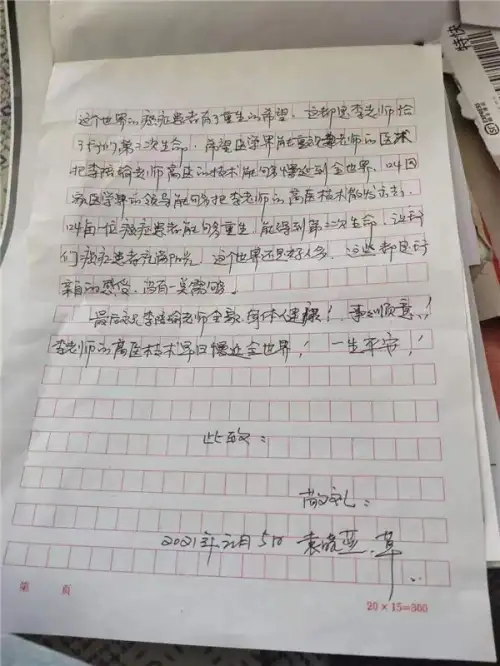 这个世界的癌症患者有了重生的希望。这都是李老师给
了我们第二次生命，希望医学界能重视李老师的医术
把李老师高医的技术能够传达到全世界。叫国
家医学界的领导能够把李老师的高医技术散发出去，
叫每一位癌症患者能够重生，能得到第二次生命，让我
们癌症患者充满阳光，这个世界还是好人多，这些都是我
亲自的感受，没有一莫虚够。
最后祝李老师全家身体健康！事事顺意！
李老师的高医技术早日传达全世界！一生平安！
此致：
敬礼：
2021年元月5日 袁 草
第 页
20×15=300
特快